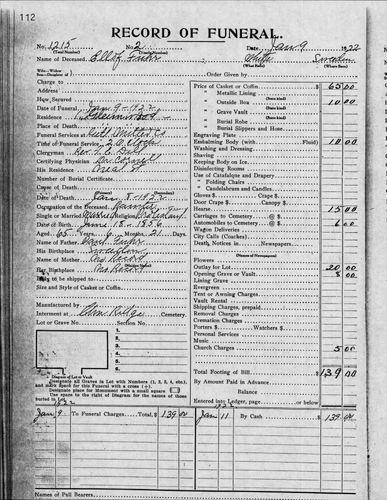 112
RECORD OF FUNERAL.
No. 1215 No. 2 Date, Jan 9 1922
(Total Number) (Yearly Number)
Name of Deceased White Sweden
(What Race) (Where Born)
Order Given by
Charge to
Address
How Secured
Date of Funeral Jan 9 - 1922
Residence
Place of Death
Funeral Services at
Time of Funeral Service 2 O'clock
Clergyman Rev.
Certifying Physician Dr
His Residence
Number of Burial Certificate
Cause of Death
Date of Death Jan 8 - 1922
Occupation of the Deceased Farmer
Single or Married Married Religion
Date of Birth June 18 - 1856
Aged 65 Years 6 Months 21 Days
Name of Father
His Birthplace Sweden
Name of Mother
Her Birthplace
Body to be shipped to
Size and Style of Casket or Coffin
Manufactured by
Interment at Elm Ridge Cemetery.
Lot or Grave No. Section No.
1
2
3
4
5
6
Diagram of Lot or Vault
Designate all Graves in Lot with Numbers (1, 2, 3, 4, etc.),
and mark Spot for this Funeral with a cross (+).
Designate place for Monument with a small square □
Use space to right of Diagram for the names of those
buried in lot.
Price of Casket or Coffin $ 65 00
" Metallic Lining
" Outside Box (State kind) 10 00
" Grave Vault (State kind)
" Burial Robe (State kind)
" Burial Slippers and Hose
Engraving Plate
Embalming Body (with Fluid) $ 18 00
Washing and Dressing
Shaving
Keeping Body on Ice
Disinfecting Rooms
Use of Catafalque and Drapery
" Folding Chairs
" Candelabrum and Candles
Gloves $ Crape $
Door Crape $ Canopy $
Hearse 15 00
Carriages to Cemetery @ $
Automobiles to Cemetery @ $ 6 00
Wagon Deliveries
City Calls (Coaches)
Death, Notices in Newspapers
(Names of Newspapers)
Flowers
Outlay for Lot 20 00
Opening Grave or Vault
Lining Grave
Evergreen
Tent or Awning Charges
Vault Rental
Shipping Charges, prepaid
Removal Charges
Cremation Charges
Porters $ Watchers $
Personal Services
Music
Church Charges 5 00
Total Footing of Bill $ 139 00
By Amount Paid in Advance
Balance
Entered into Ledger, page or below.
1922 1922
Jan 9 To Funeral Charges, Total, $ 139 00 Jan 11 By Cash $ 139 00
Names of Pall Bearers